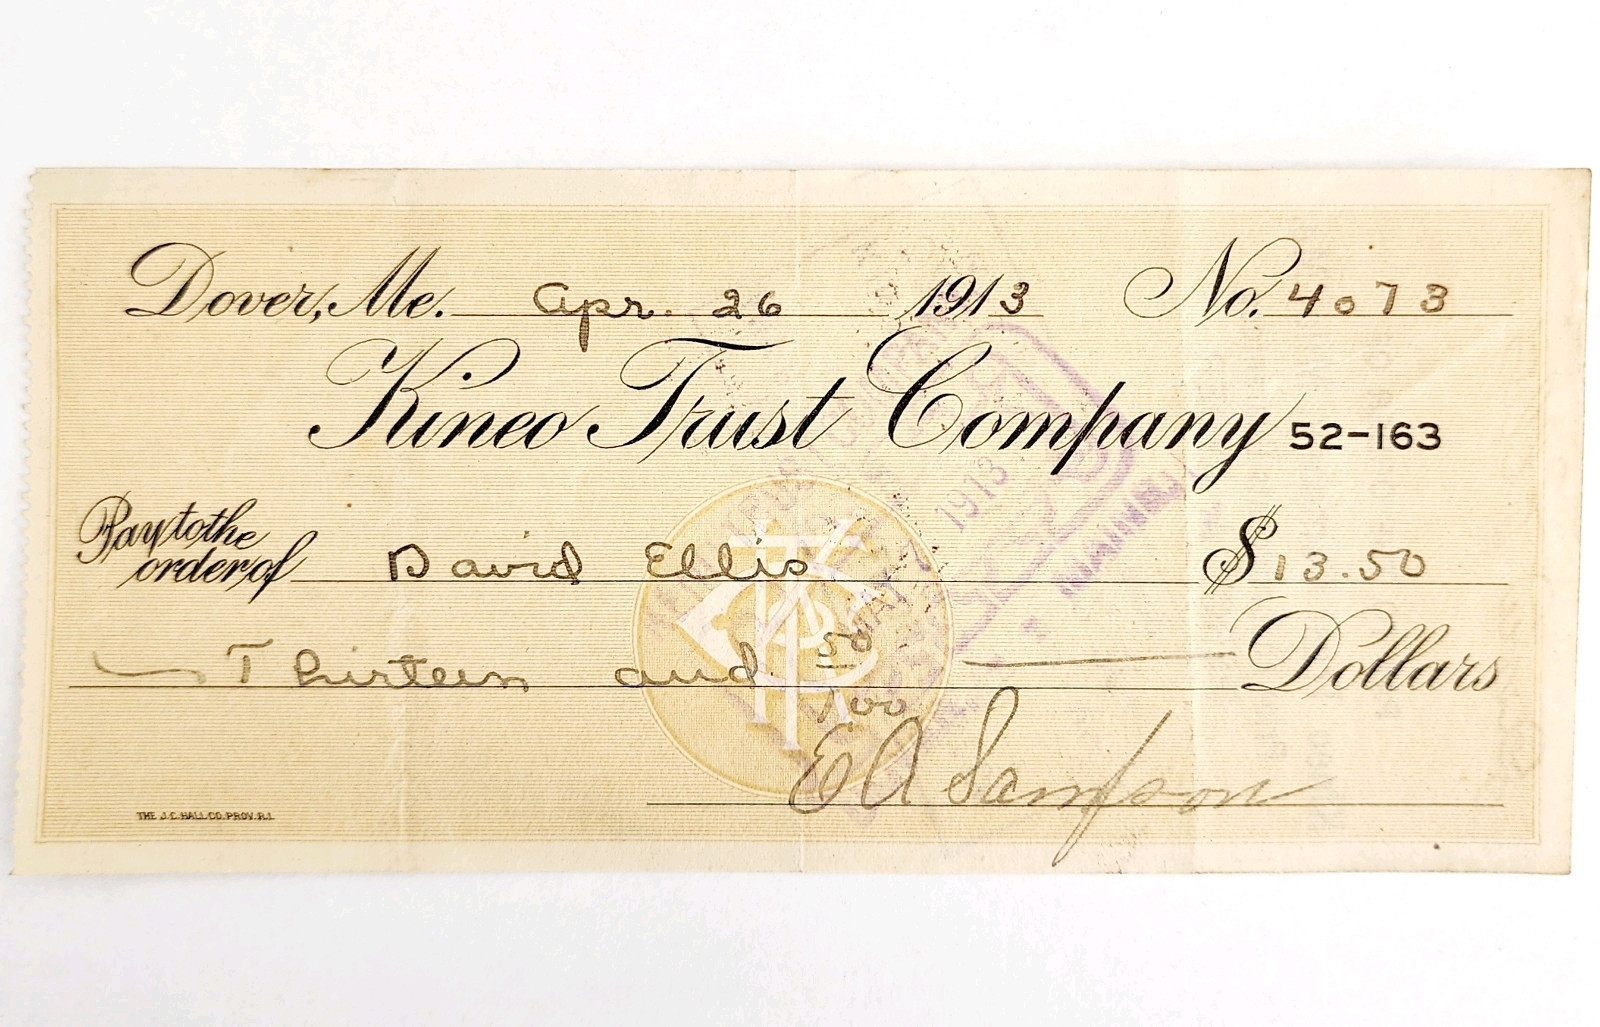 Dover, Me. Apr. 26 1913 No. 4073
Kineo Trust Company 52-163
Pay to the order of David Ellis $ 13.50
Thirteen and 50/100 Dollars
E A Sampson
THE J.C. HALL CO. PROV. R.I.
1913
MAY